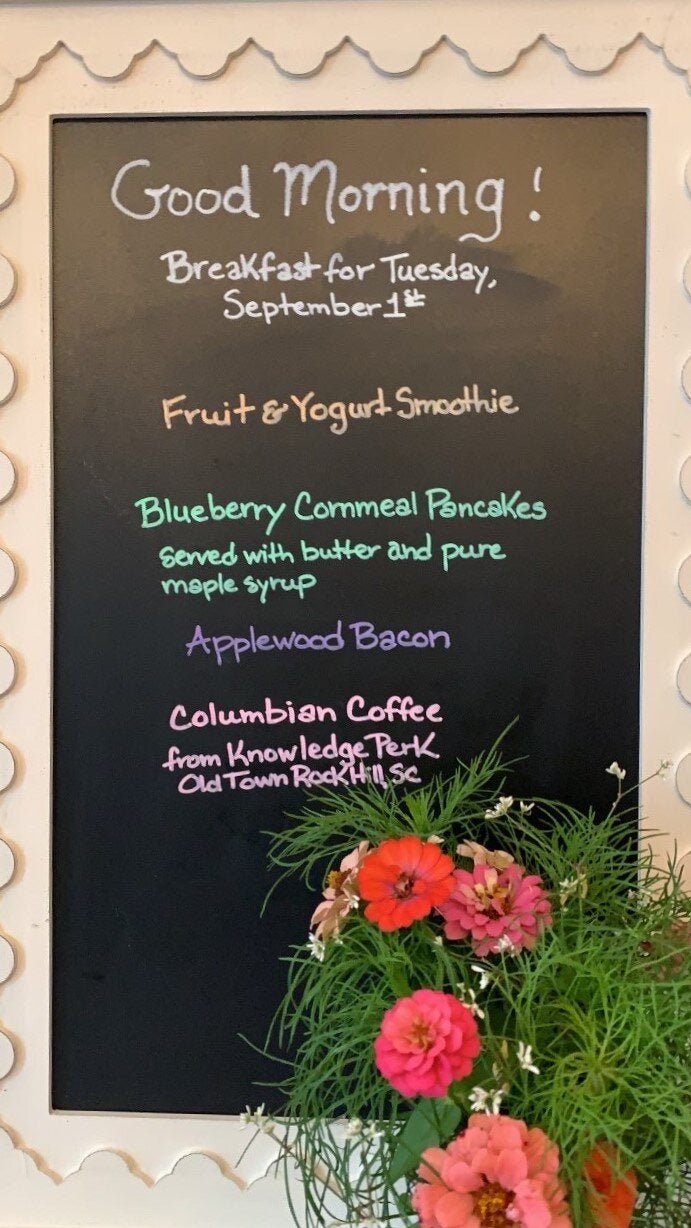 Good Morning!
Breakfast for Tuesday,
September 1st
Fruit & Yogurt Smoothie
Blueberry Cornmeal Pancakes
served with butter and pure
maple syrup
Applewood Bacon
Columbian Coffee
from Knowledge Perk
Old Town Rock Hill, SC